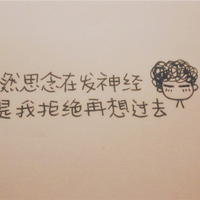 然思念在发神经
是我拒绝再想过去